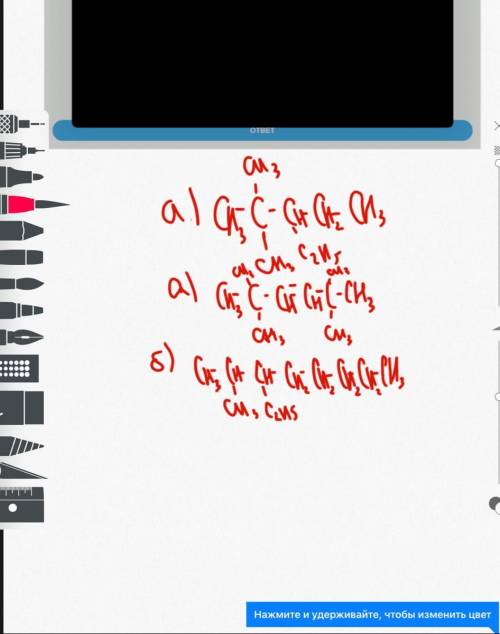 ОТВЕТ
CH3
а) CH3 - C - CH CH2 CH3
CH3 C2H5
CH3 CH3
а) CH3 - C - CH - CH - C - CH3
CH3 CH3
б) CH3 CH CH CH2 CH2 CH2 CH2 CH3
CH3 C2H5
Нажмите и удерживайте, чтобы изменить цвет